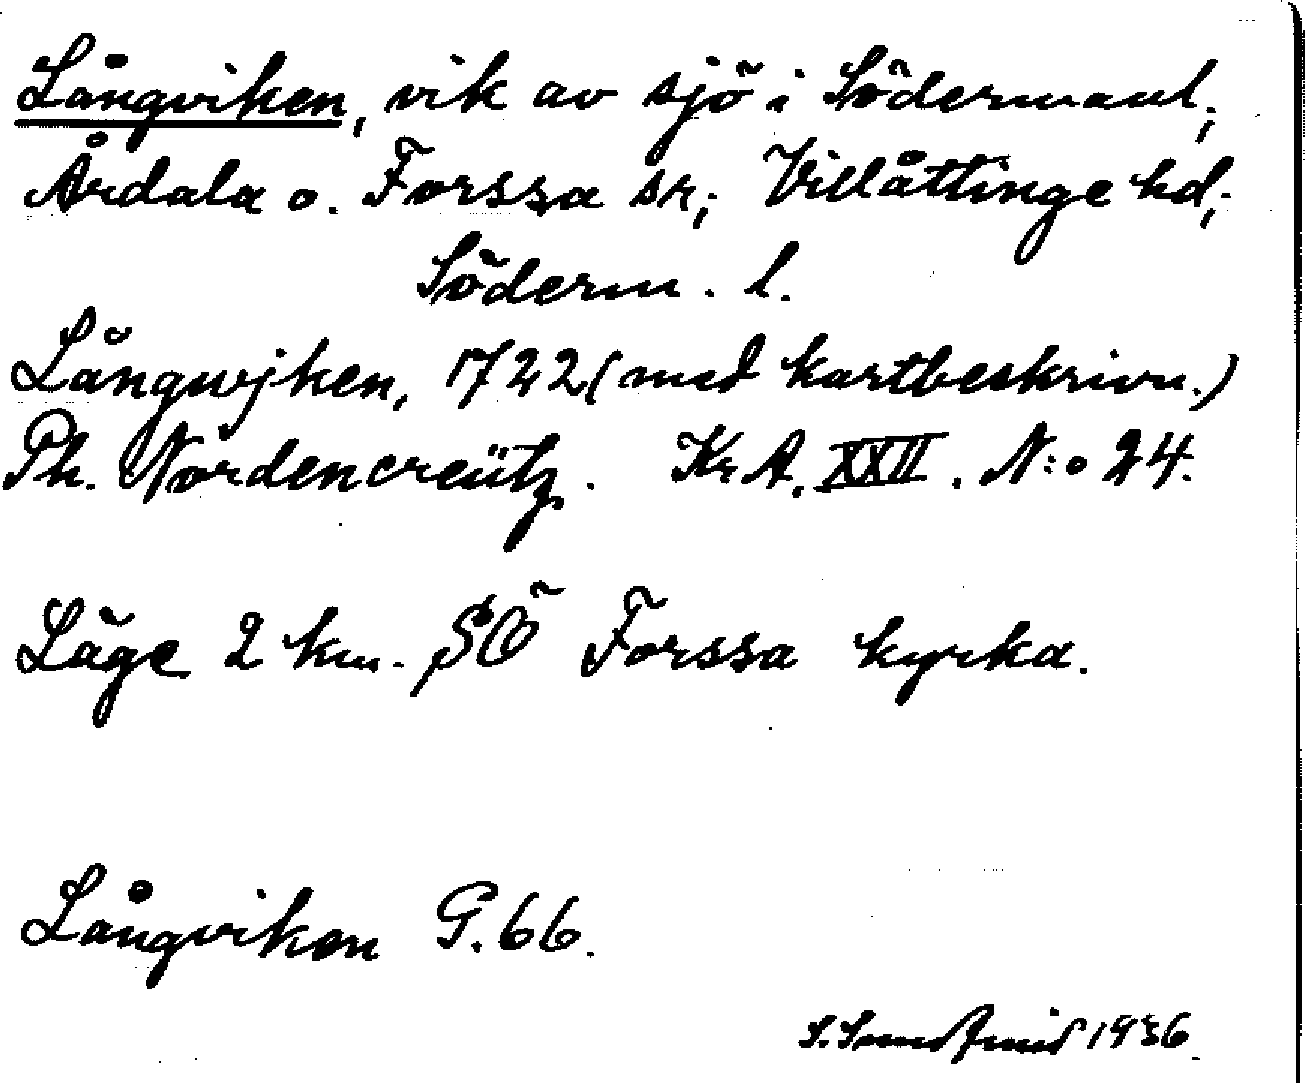 Långviken, vik av sjö i Södermanl;
Årdala o. Forssa sn; Villåttinge hd;
Söderm. l.
Långwjken, 1722 (med kartbeskrivn.)
Ph. Nordencreütz. Kr A. XXII. N:o 24.
Läge 2 km. SÖ Forssa kyrka.
Långviken G.66.
S. 1936